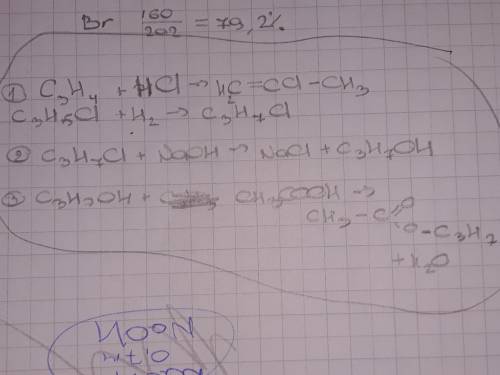 Br 160/202 = 79,2%
① C3H4 + HCl → H2C=CCl-CH3
C3H5Cl + H2 → C3H7Cl
② C3H7Cl + NaOH → NaCl + C3H7OH
③ C3H7OH + CH3COOH →
CH3-C=O
O-C3H7
+ H2O
NaOH